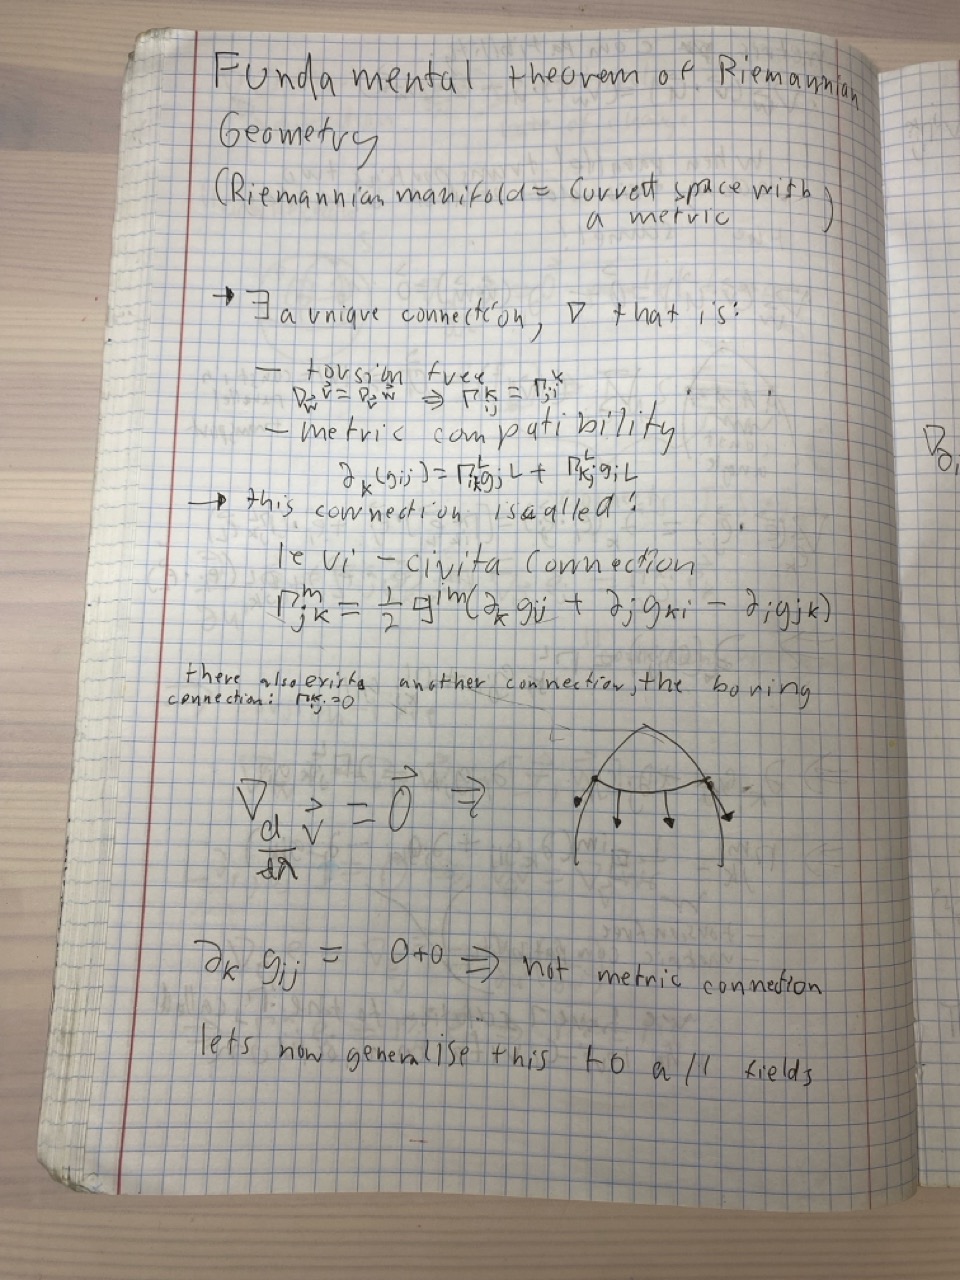 Fundamental theorem of Riemannian
Geometry
(Riemannian manifold = Curved space with
a metric)
→ ∃ a unique connection, ∇ that is:
— torsion free
∇_w⃗ v⃗ = ∇_v⃗ w⃗ ⇒ Γ^k_ij = Γ^k_ji
— metric compatibility
∂_k(g_ij) = Γ^L_ik g_jL + Γ^L_kj g_iL
→ this connection is called:
levi-civita connection
Γ^m_jk = 1/2 g^im(∂_k g_ij + ∂_j g_ki − ∂_i g_jk)
there also exists another connection, the boring
connection: Γ^k_ij = 0
∇_(d/dλ) v⃗ = 0⃗ ⇒
∂_k g_ij = 0+0 ⇒ not metric connection
lets now generalise this to all fields